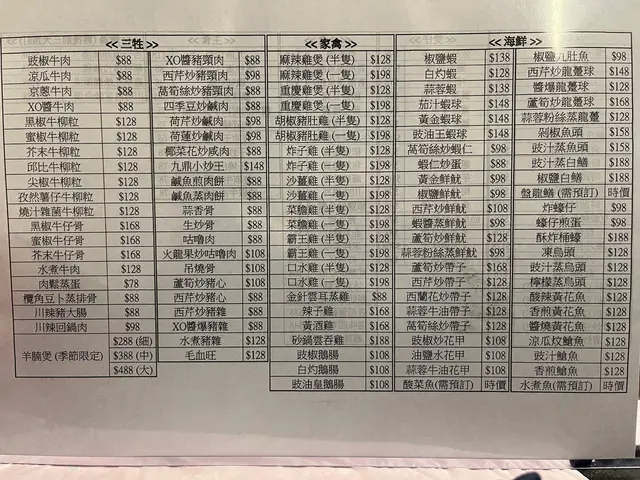 << 三牲 >>
豉椒牛肉 $88
涼瓜牛肉 $88
京蔥牛肉 $88
XO醬牛肉 $88
黑椒牛柳粒 $128
蜜椒牛柳粒 $128
芥末牛柳粒 $128
邱比牛柳粒 $128
尖椒牛柳粒 $128
孜然薯仔牛柳粒 $128
燒汁雜菌牛柳粒 $128
黑椒牛仔骨 $168
蜜椒牛仔骨 $168
芥末牛仔骨 $168
水煮牛肉 $128
肉鬆蒸蛋 $78
欖角豆卜蒸排骨 $88
川辣豬大腸 $88
川辣回鍋肉 $98
羊腩煲 (季節限定) $288 (細)
$388 (中)
$488 (大)
XO醬豬頸肉 $88
西芹炒豬頸肉 $98
萵筍絲炒豬頸肉 $88
四季豆炒鹹肉 $98
荷芹炒鹹肉 $98
荷蓮炒鹹肉 $98
椰菜花炒咸肉 $88
九鼎小炒王 $148
鹹魚煎肉餅 $88
鹹魚蒸肉餅 $88
蒜香骨 $88
生炒骨 $88
咕嚕肉 $88
火龍果炒咕嚕肉 $108
吊燒骨 $108
蘆筍炒豬心 $108
西芹炒豬心 $88
西芹炒豬雜 $88
XO醬爆豬雜 $88
水煮豬雜 $128
毛血旺 $128
<< 家禽 >>
麻辣雞煲 (半隻) $128
麻辣雞煲 (一隻) $198
重慶雞煲 (半隻) $128
重慶雞煲 (一隻) $198
胡椒豬肚雞 (半隻) $128
胡椒豬肚雞 (一隻) $198
炸子雞 (半隻) $128
炸子雞 (一隻) $198
沙薑雞 (半隻) $128
沙薑雞 (一隻) $198
菜膽雞 (半隻) $128
菜膽雞 (一隻) $198
霸王雞 (半隻) $128
霸王雞 (一隻) $198
口水雞 (半隻) $128
口水雞 (一隻) $198
金針雲耳蒸雞 $88
辣子雞 $168
黃酒雞 $168
砂鍋雲吞雞 $188
豉椒鵝腸 $108
白灼鵝腸 $108
豉油皇鵝腸 $108
<< 海鮮 >>
椒鹽蝦 $138
白灼蝦 $128
蒜蓉蝦 $138
茄汁蝦球 $148
黃金蝦球 $148
豉油王蝦球 $148
萬筍絲炒蝦仁 $98
蝦仁炒蛋 $88
黃金鮮魷 $98
椒鹽鮮魷 $98
西芹炒鮮魷 $108
蝦醬蒸鮮魷 $98
蘆筍炒鮮魷 $128
蒜蓉粉絲蒸鮮魷 $98
蘆筍炒帶子 $168
西芹炒帶子 $128
西蘭花炒帶子 $128
蒜蓉牛油帶子 $128
萬筍絲炒帶子 $128
豉椒炒花甲 $108
油鹽水花甲 $108
蒜蓉牛油花甲 $108
酸菜魚(需預訂) 時價
椒鹽九肚魚 $98
西芹炒龍躉球 $148
醬爆龍躉球 $128
蘆筍炒龍躉球 $168
蒜蓉粉絲蒸龍躉 $128
剁椒魚頭 $158
豉汁蒸魚頭 $158
豉汁蒸白鱔 $188
椒鹽白鱔 $188
盤龍鱔(需預訂) 時價
炸蠔仔 $98
蠔仔煎蛋 $98
酥炸桶蠔 $188
凍烏頭 $128
豉汁蒸烏頭 $128
檸檬蒸烏頭 $128
酸辣黃花魚 $128
香煎黃花魚 $128
醬燒黃花魚 $128
涼瓜炆鱠魚 $128
豉汁鱠魚 $128
香煎鱠魚 $128
水煮魚(需預訂) 時價